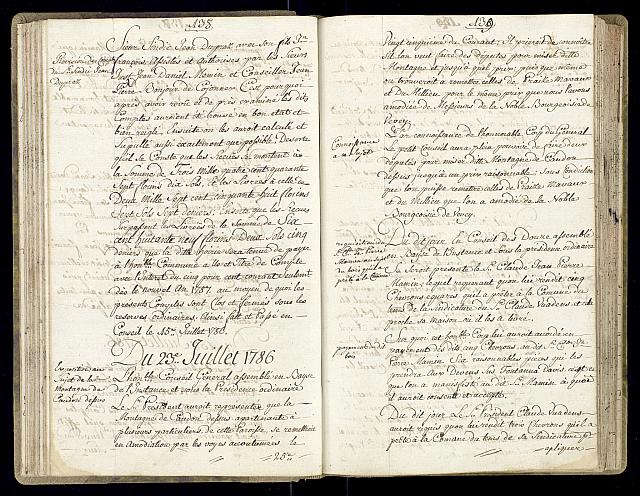 138.
Sieur Sindic Jean Duprat avec son fils Jn
François Assistés et Authorisés par les Sieurs
Just Jean Daniel Monen et Conseiller Jean
Pierre Bonjour de Cojonnex C'est pourquoi
après avoir revû et de près examiné les dits
Comptes auroient été trouvé en bon état et
bien reiglé. Ensuite on les auroit calculé et
Supputé aussi exactement que possible; Desorte
qu'il se Conste que les Recües se montent en
la Somme de Trois Mille quatre cent quarante
Sept florins dix Sols, Et les Livrées à celle de
Deux Mille Sept cent cinquante huit florins
Sept Sols Sept deniers; Ensorte que les Recues
Surpassent les Livrées de la Somme de Six
cent huitante neuf florins Deux Sols cinq
deniers que la ditte Hoirie sera tenue de payer
à l'honble Commune à titre de Compte
avec l'interêt du cinq pour cent courant seulement
dès le nouvel An 1787. au moyen de quoi les
presents Comptes Sont Clos et fermés sous les
reserves ordinaires, Ainsi fait et Passé en
Conseil le 15e Juillet 1786.
Du 23e Juillet 1786
L'honble Conseil General assemblé en Bayse
de l'Instance et sous la Presidence ordinaire
Le Sr President auroit représenté que la
Montagne de Caudon dessus appartenante à
plusieurs particuliers de cette Paroisse, se remettroit
en amodiation par les voyes accoutumées le
25e
139.
Vingt cinquieme du Courant; Il prieroit de connoitre
Si l'on veut faire des deputés pour miser ditte
Montagne et jusqu'à quel prix; puis que même
on trouveroit à remettre celles de Praitte Mavaux
et du Millieu pour le même prix que nous l'avons
amodiée de Messieurs de la Noble Bourgeoisie de
Vevey.
Connoissance
à ce sujet
Par connoissance de l'honnorable Corp du General
le petit Conseil aura plein pouvoir de faire deux
deputés pour miser ditte Montagne de Caudon
dessus jusqu'à un prix raisonnable; Sous condition
que l'on puisse remettre celles de Praitte Mavaux
et du Millieu que l'on a amodié de la Noble
Bourgeoisie de Vevey.
Du dit jour le Conseil des Douze assemblé
en Bayse de l'Instance et sous la presidence ordinaire
Se seroit presenté le Sr Claude Jean Pierre
Mamin, lequel requeroit qu'on lui rendit cinq
Chevrons equarés qu'il a pretés à la Comune du
tems de la Sindicature du Sr Claude Vuadens et cela
proche sa maison où il les a livré.
payement des dits
bois
Sur quoi cet honble Corp lui auroit accordé en
payement des dits cinq Chevrons au dit Sr Cde Jn
Pierre Mamin Six raisonnables pièces qui les
prendra Aux Devens Sous Fontanna Davis, ce que
l'on a manifesté au dit Sr Mamin à quoi
il auroit consenti et accepté.
Du dit jour Le Sr President Claude Vuadens
auroit requis qu'on lui rendit trois Chevrons qu'il a
preté à la Comune du tems de sa Sindicature pr
apliquer